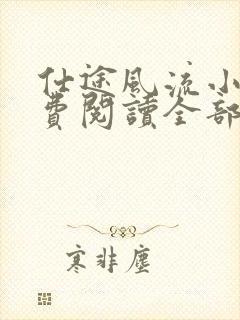 仕途風流小
費閱讀全部
寒非塵